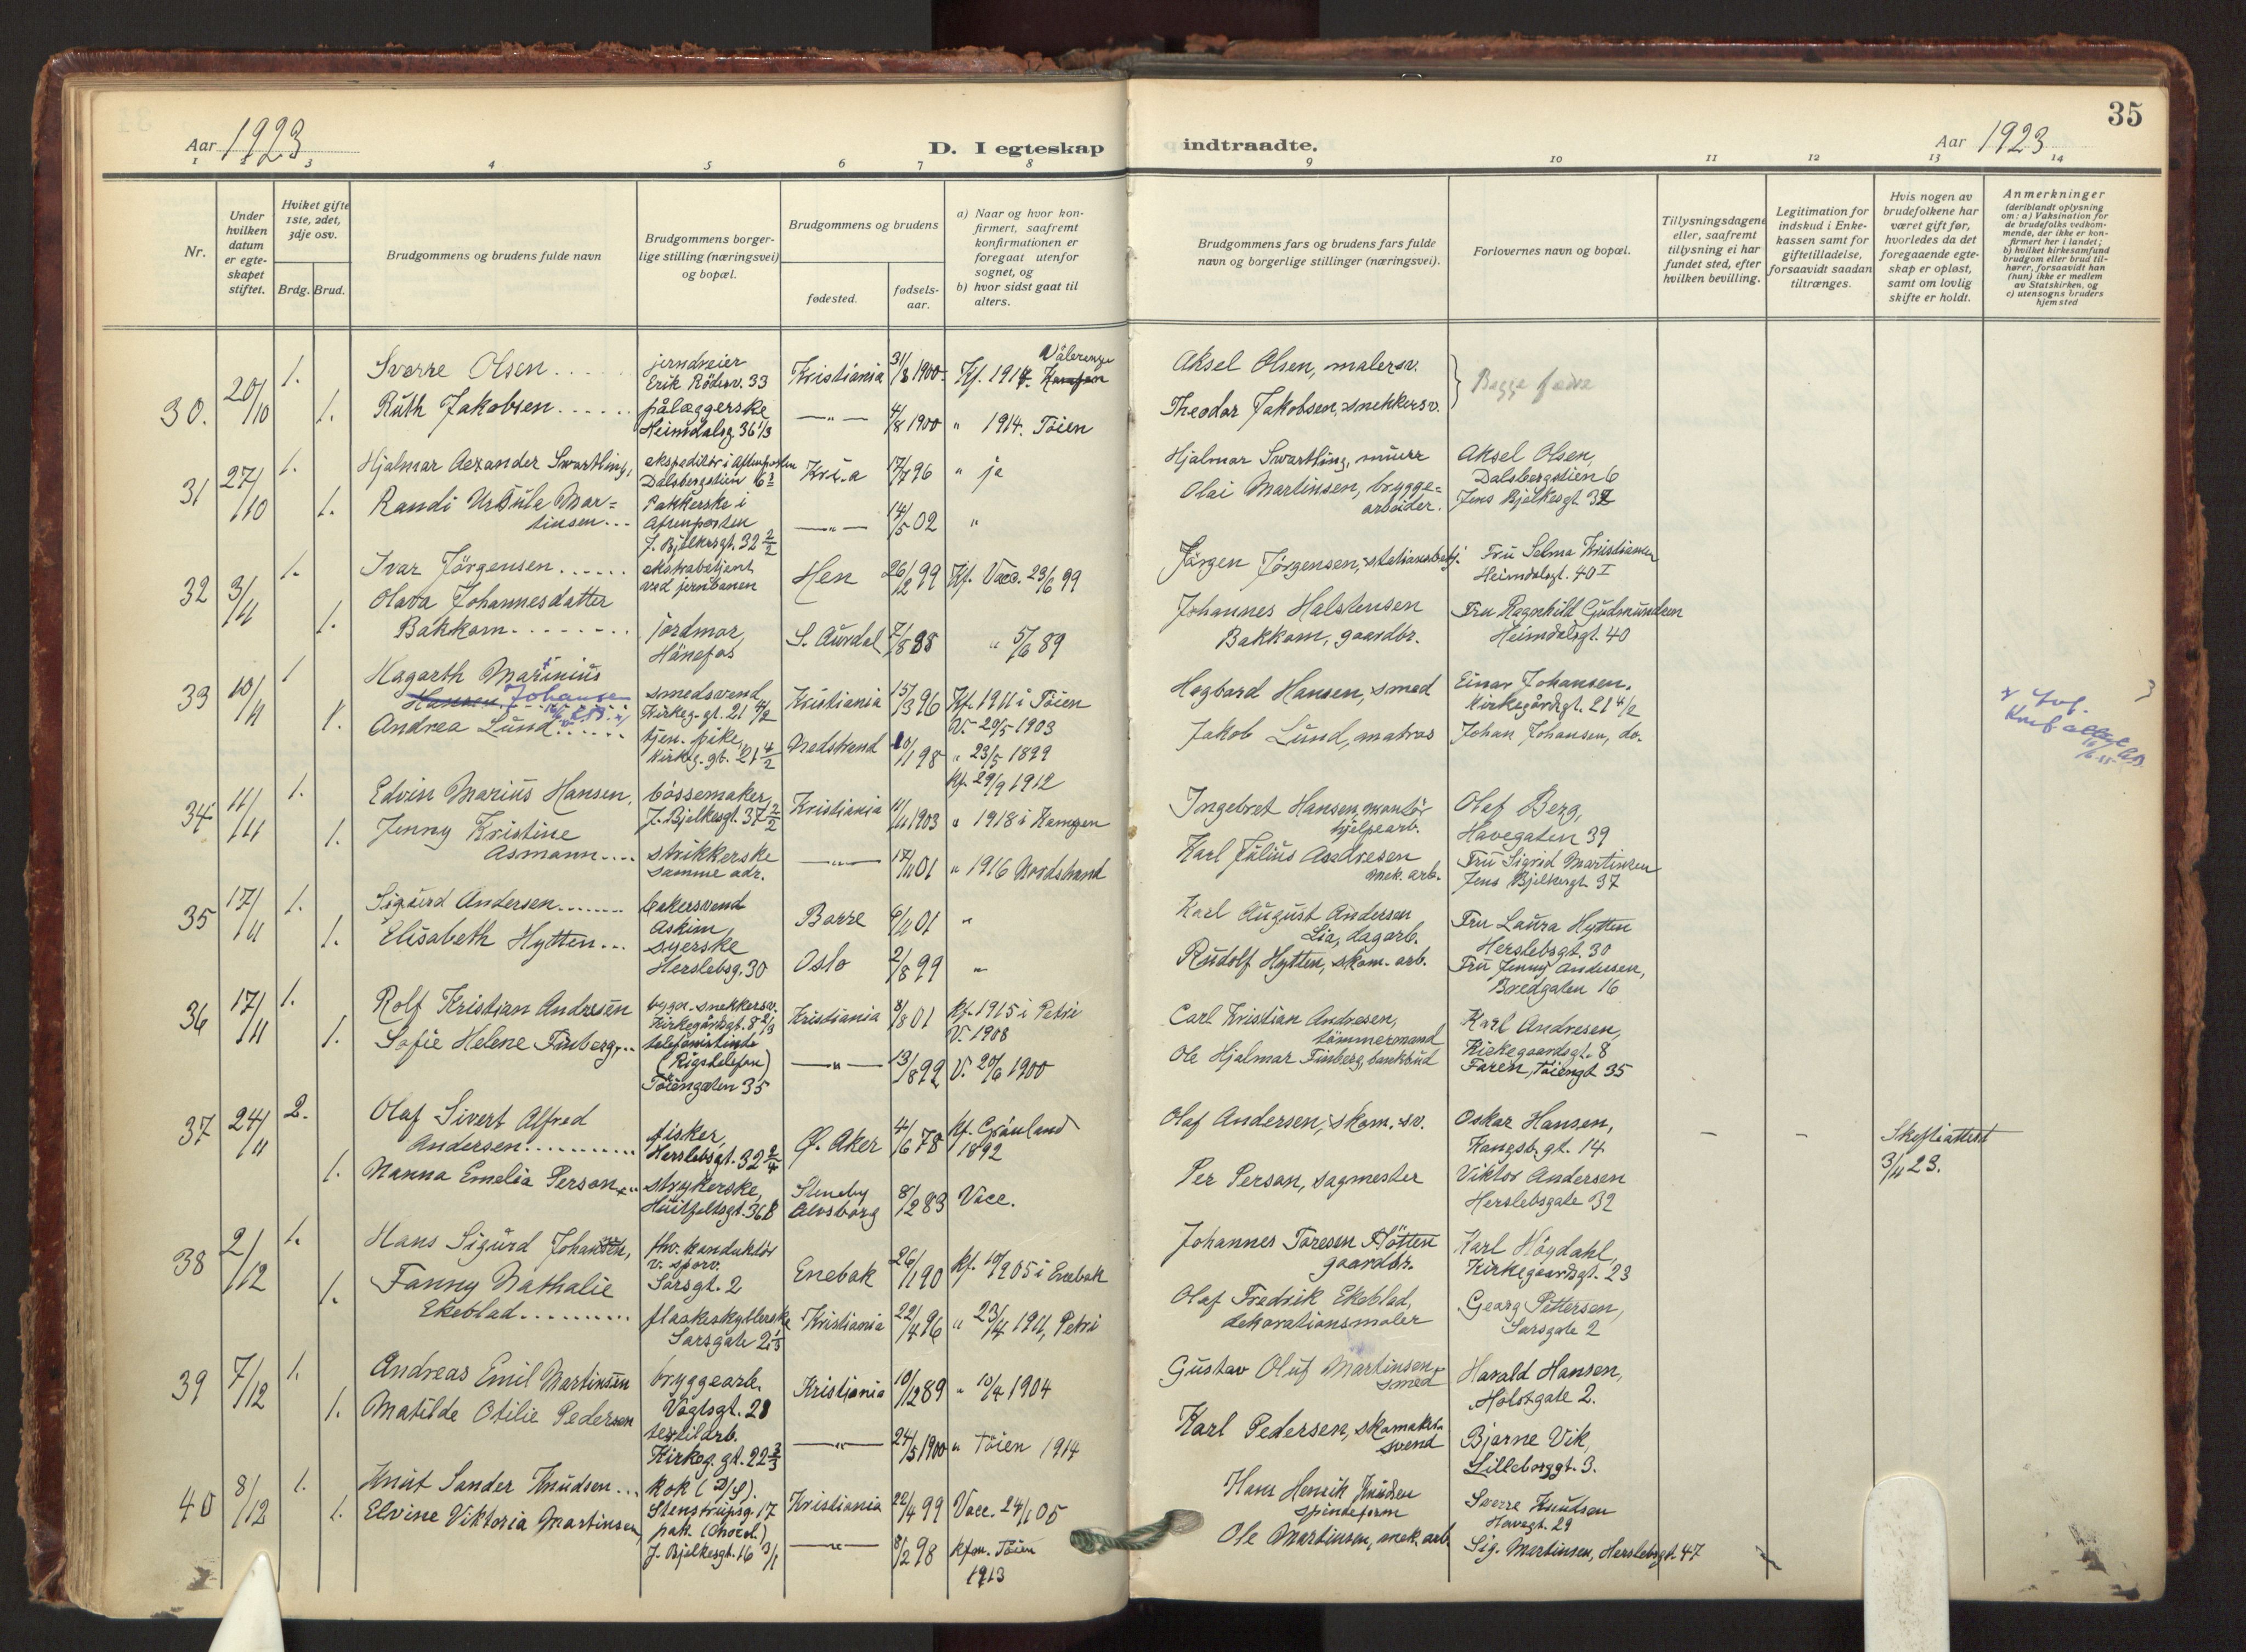 35
Aar 1923
D. I egteskap indtraadte.
Aar 1923
1 2 3 4 5 6 7 8 9 10 11 12 13 14
Nr.
Under hvilken datum er egteskapet stiftet.
Hviket gifte 1ste, 2det, 3dje osv.
Brdg. Brud.
Brudgommens og brudens fulde navn
Brudgommens borgerlige stilling (næringsvei) og bopæl.
Brudgommens og brudens
fødested.
fødselsaar.
a) Naar og hvor konfirmert, saafremt konfirmationen er foregaat utenfor sognet, og
b) hvor sidst gaat til alters.
Brudgommens fars og brudens fars fulde navn og borgerlige stillinger (næringsvei).
Forlovernes navn og bopæl.
Tillysningsdagene eller, saafremt tillysning ei har fundet sted, efter hvilken bevilling.
Legitimation for indskud i Enkekassen samt for giftetilladelse, forsaavidt saadan tiltrænges.
Hvis nogen av brudefolkene har været gift før, hvorledes da det foregaaende egteskap er opløst, samt om lovlig skifte er holdt.
Anmerkninger
(deriblandt oplysning om: a) Vaksination for de brudefolks vedkommende, der ikke er konfirmert her i landet;
b) hvilket kirkesamfund brudgom eller brud tilhører, forsaavidt han (hun) ikke er medlem av Statskirken, og
c) utensogns bruders hjemsted
30. 20/10 1. Sverre Olsen.... jerndreier Erik Rödesv. 33 Kristiania 31/8 1900. Kf. 1914. Vålerenga Aksel Olsen, malersv. Begge fædre
1. Ruth Jakobsen...... pålæggerske Heimdalsg. 36 1/3 —"— 4/8 1900 " 1914. Töien Theodor Jakobsen, snekkersv.
31 27/10 1. Hjalmar Aexander Swartling, ekspeditör i Aftenposten Dalsbergstien 6 Kr.a 17/7 96 " ja Hjalmar Swartling, murer Aksel Olsen, Dalsbergstien 6
1. Randi Ursula Martinsen... Pakkerske i Aftenposten J. Bjelkesgt. 32 2/2 —"— 14/5 02 " Olai Martinsen, bryggearbeider. Jens Bjelkesgt. 32
32 3/11 1. Ivar Jörgensen...... ekstrabetjent ved jernbanen Hen 26/2 99 Kf. Vacc. 23/6 99 Jörgen Jörgensen, stationsbetj. Fru Selma Kristiansen Heimdalsgt. 40 I
1. Olava Johannesdatter Bakkom........ jordmor, Hönefos S. Aurdal 7/8 88 " 5/6 89 Johannes Halstensen Bakkom, gaardbr. Fru Ragnhild Gudmundsen Heimdalsgt. 40
33 10/11 1 Hagarth Marinius Hansen Johansen smedsvend, Kirkeg.gt. 21 4/2 Kristiania 15/3 96 Kf. 1911 i Töien V. 20/5 1903 Hagbard Hansen, smed Einar Johansen. Kirkegårdsgt. 21 4/2
1. Andrea Lund...... tjen. pike, Kirkeg. gt. 21 4/2 Nedstrand 10/1 98 " 23/5 1899 Kf. 29/9 1912 Jakob Lund, matros Johan Johansen, do.
34 11/11 1. Edvin Marius Hansen, bössemaker, J. Bjelkesgt. 37 2/2 Kristiania 11/11 1903 " 1918 i Kampen Ingebret Hansen, montör hjelpearb. Olaf Berg, Havegaten 39
1. Jenny Kristine Asmann.... strikkerske samme adr. —"— 17/11 01 " 1916 Nordstrand Karl Julius Andresen mek. arb. Fru Sigrid Martinsen Jens Bjelkesgt. 37
35 17/11 1. Sigurd Andersen........ bakersvend Askim, Borre 6/11 01 " Karl August Andersen Lia, dagarb. Fru Laura Hytten Herslebsgt. 30
1. Elisabeth Hytten... syerske Herslebsg. 30 Oslo 2/8 99 " Rudolf Hytten, skom. arb. Fru Jenny Andersen, Bredgaten 16
36 17/11 1. Rolf Kristian Andresen bygn. snekkersv. Kirkegårdsgt. 8 2/3 Kristiania 8/8 01 Kf. 1915 i Petri V. 1908 Carl Kristian Andresen, tömmermand Karl Andresen, Kirkegaardsgt. 8
1. Sofie Helene Finberg,.. telefonistinde (Rigstelefon) Töiengaten 35 —"— 13/8 99 V. 20/6 1900 Ole Hjalmar Finberg, bankbud Faren, Töiengt 35
37 24/11 2. Olaf Sivert Alfred Andersen........... fisker, Herslebsgt. 32 2/4 Ø. Aker 4/6 78 Kf. Grönland 1892 Olaf Andersen, skom. sv. Oskar Hansen, Kangsb. gt. 14 – – Skifteattest 3/11 23.
1. Nanna Emelia Person... strykerske, Huitfeltsgt. 36 B Steneby Alvsborg 8/2 83 Vacc. Per Person, sagmester Viktor Andersen Herslebsgate 32
38 2/12 1. Hans Sigurd Johansen, fhv. konduktör v. sporv. Sarsgt. 2 Enebak 26/1 90 Kf. 10/9 05 i Enebak Johannes Toresen Flötten gaardbr. Karl Höydahl, Kirkegaardsgt. 23
1. Fanny Nathalie Ekeblad.......... flaskeskyllerske Sarsgate 2 1/3 Kristiania 22/4 96 " 23/4 1911, Petri Olaf Fredrik Ekeblad, dekorationsmaler Georg Pettersen, Sarsgate 2
39 7/12 1. Andreas Emil Martinsen bryggearb. Vogtsgt. 28 Kristiania 10/12 89 " 10/4 1904 Gustav Oluf Martinsen, smed Harald Hansen, Holstgate 2.
1. Matilde Otilie Pedersen textilarb. Kirkeg. gt. 22 2/3 —"— 24/5 1900 " Töien 1914 Karl Pedersen, skomakersvend Bjarne Vik, Lilleborggt. 3.
40 8/12 1. Knut Sander Knudsen... kok (D/S). Stenstrupsg. 17 Kristiania 22/4 99 Vacc. 24/1 05 Hans Henrik Knudsen Sverre Knudsen Havegt. 29
1. Elvine Viktoria Martinsen, pakk. (chocol.) J. Bjelkesgt. 16 3/1 —"— 8/2 98 Kfm. Töien 1913 Ole Martinsen, mek. arb. Sig. Martinsen, Herslebsgt. 47